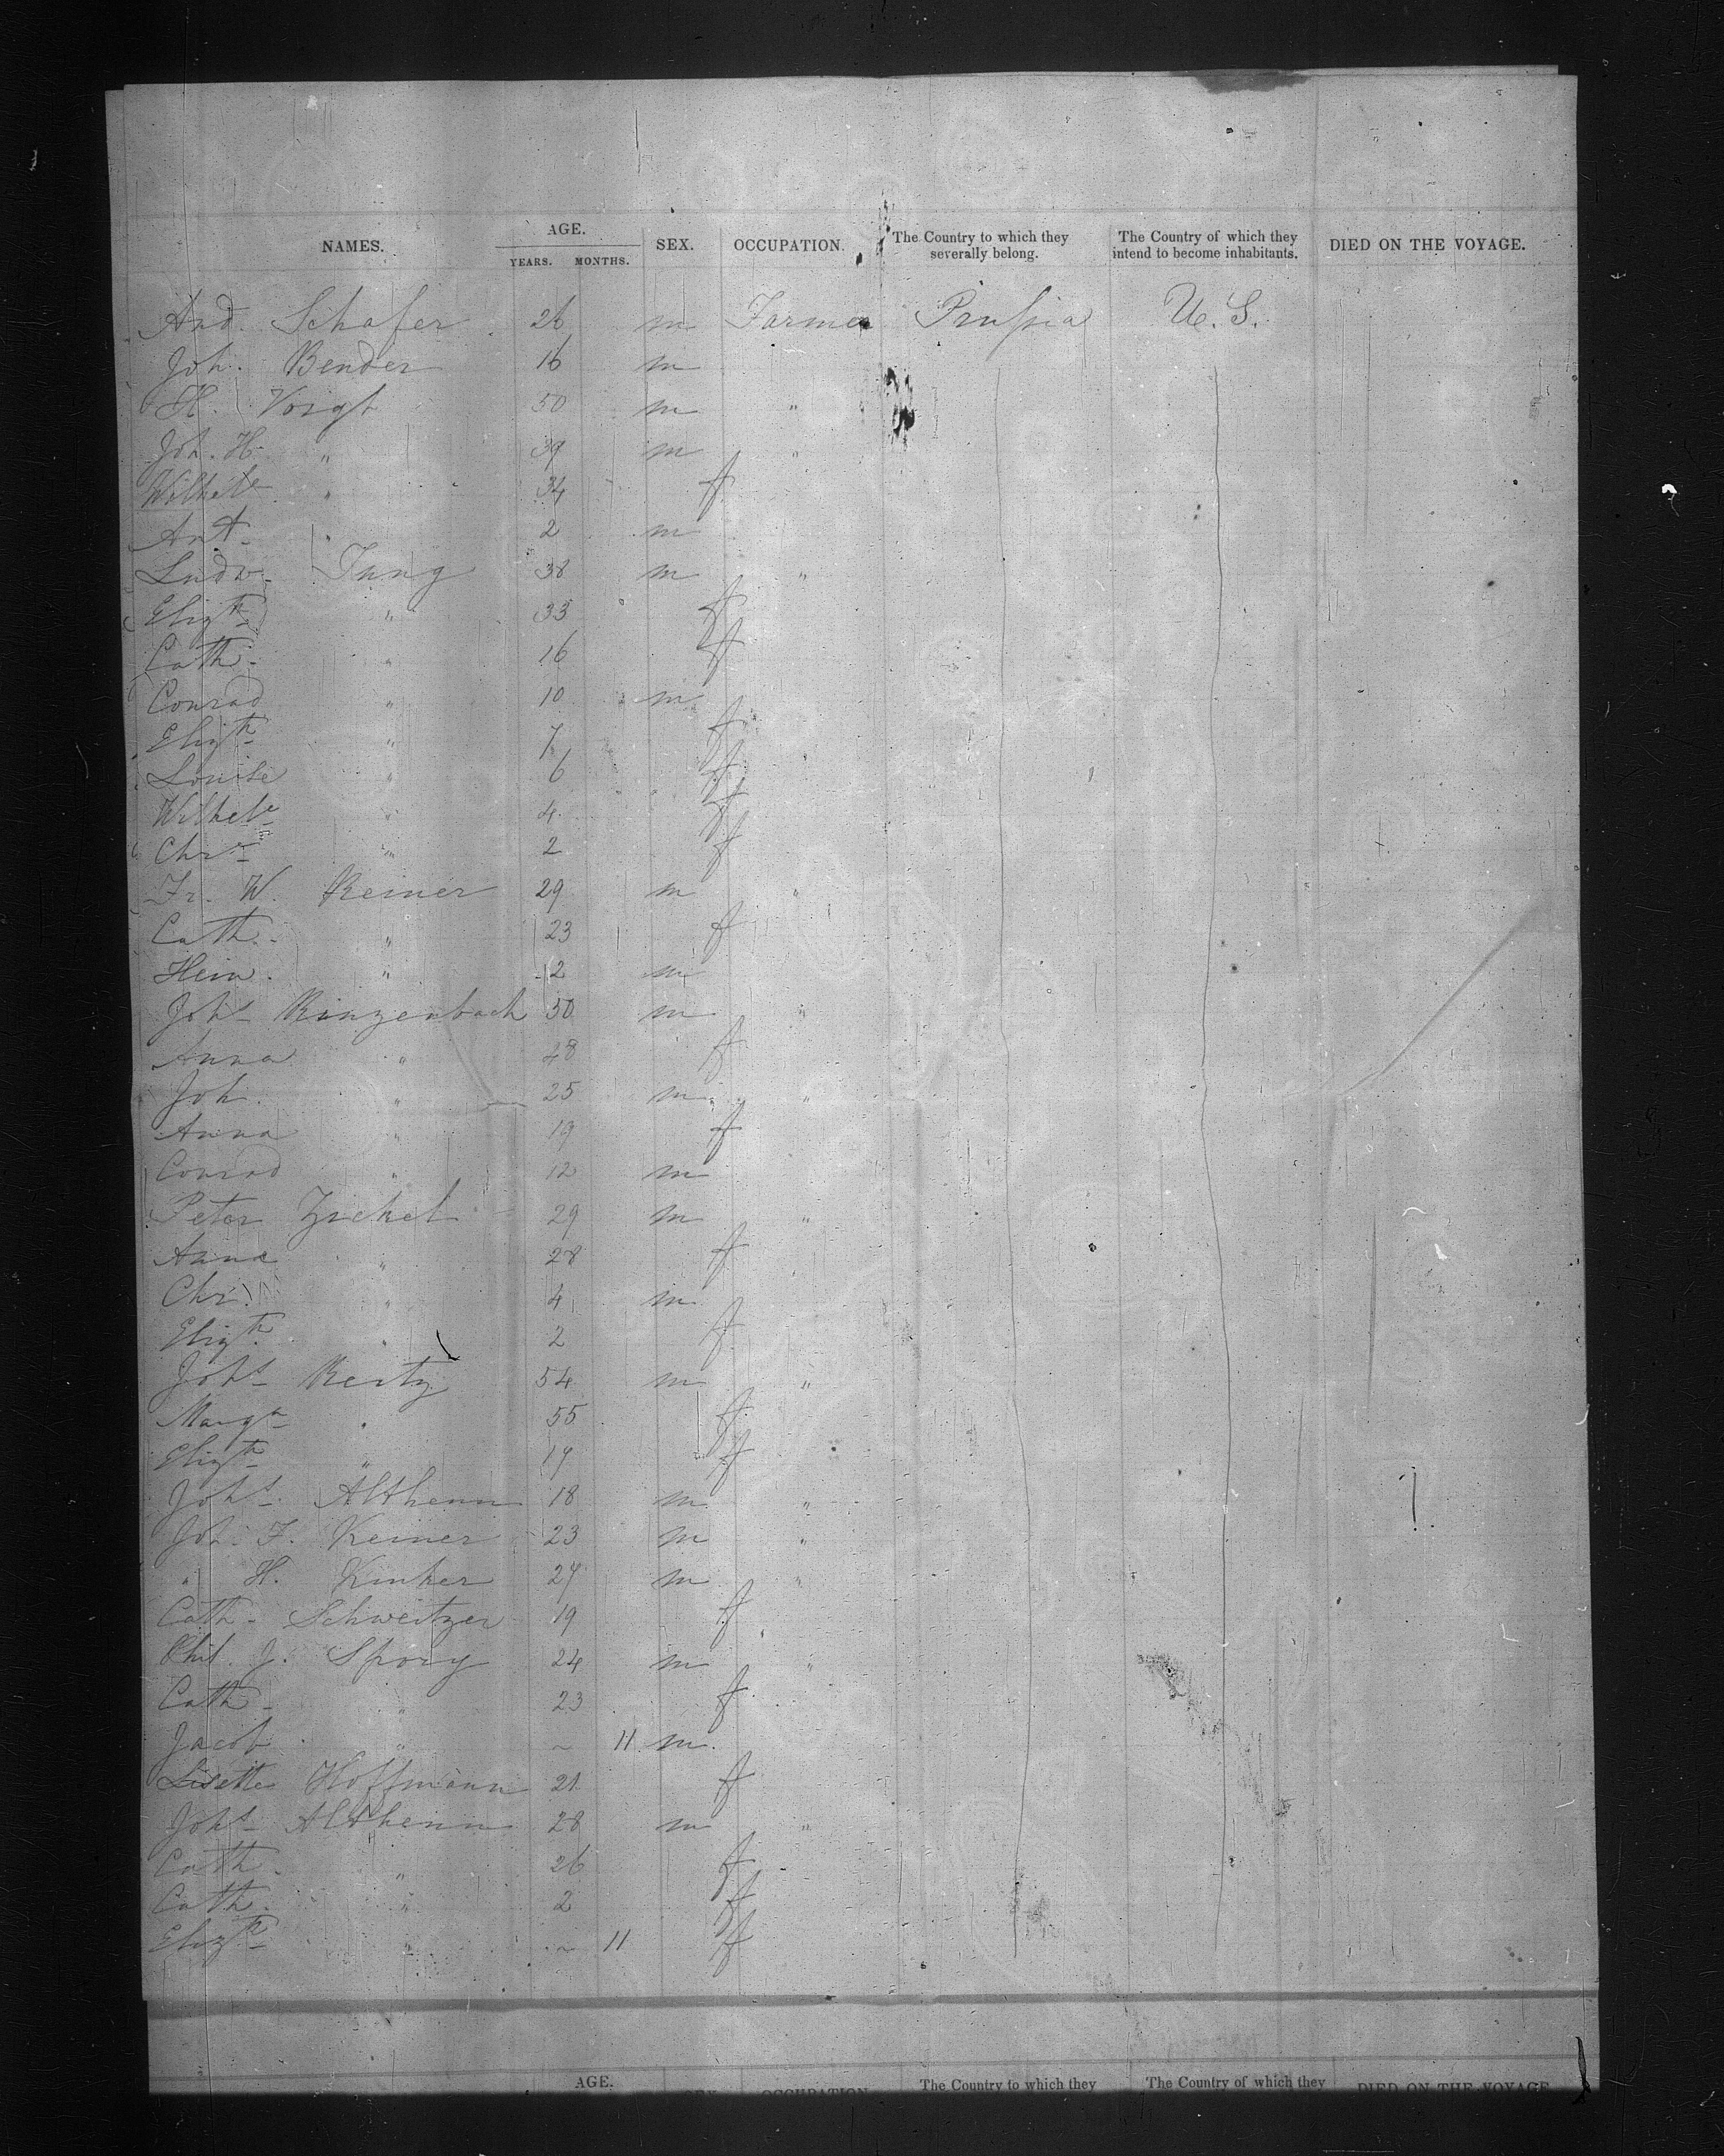 NAMES. AGE. YEARS. MONTHS. SEX. OCCUPATION. The Country to which they severally belong. The Country of which they intend to become inhabitants. DIED ON THE VOYAGE.
And. Schafer 26 m Farmer Prussia U.S.
Joh. Bender 16 m
H. Voigt 50 m "
Joh. H. " 39 m "
Wilhele " 34 f
Ant. " 2 m
Ludw. Jung 38 m "
Elizth " 33 f
Cath. " 16 f
Conrad " 10 m
Elizth " 7 f
Louise " 6 f
Wilhele " 4 f
Chre " 2 f
Fr. W. Reiner 29 m "
Cath. " 23 f
Hein. " 2 m
Johs Rinzenbach 50 m "
Anna " 48 f
Joh. " 25 m "
Anna " 19 f
Conrad " 12 m
Peter Zeckel 29 m "
Anna " 28 f
Chr. " 4 m
Elizth " 2 f
Johs Reitz 54 m "
Marga " 55 f
Elizth " 17 f
Johs Althenn 18 m "
Joh. F. Reiner 23 m "
" H. Kinker 27 m "
Cath. Schweitzer 19 f
Phil. J. Spory 24 m "
Cath. " 23 f
Jacob " ~ 11 m
Lisette Hoffmann 21 f
Johs Althenn 28 m "
Cath. " 26 f
Cath. " 2 f
Elizth " ~ 11 f
AGE. SEX. OCCUPATION. The Country to which they The Country of which they DIED ON THE VOYAGE.